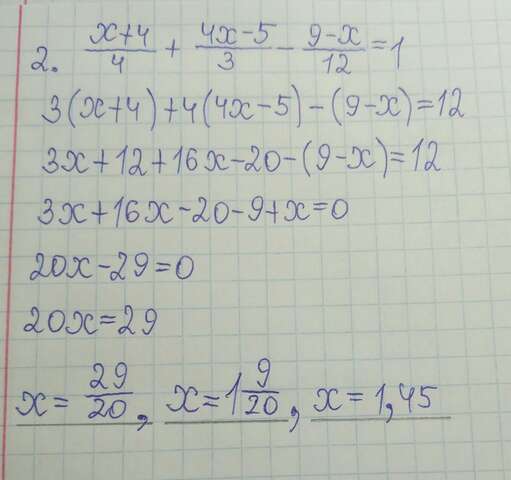 2. (x+4)/4 + (4x-5)/3 - (9-x)/12 = 1
3(x+4)+4(4x-5)-(9-x)=12
3x+12+16x-20-(9-x)=12
3x+16x-20-9+x=0
20x-29=0
20x=29
x= 29/20, x=1 9/20, x=1,45